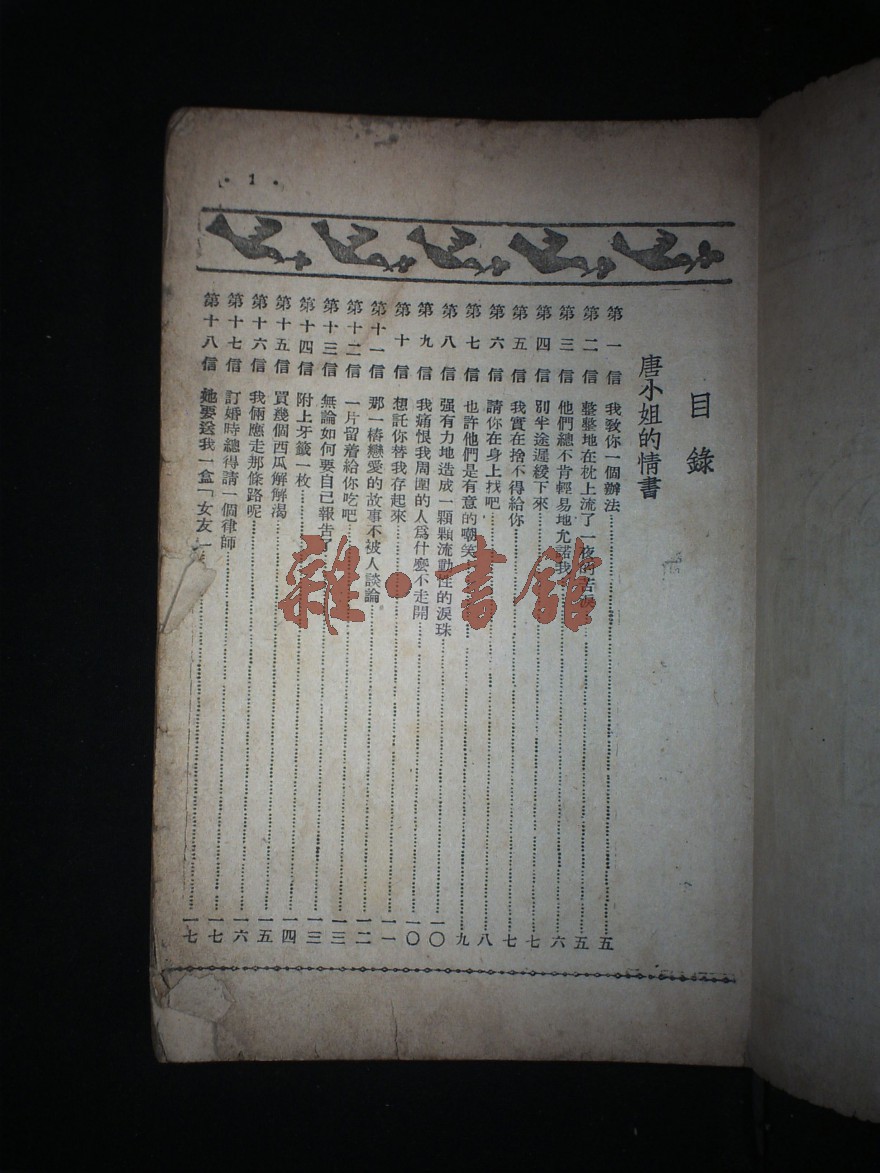 · 1 ·
目錄
唐小姐的情書
第一信 我敎你一個辦法……五
第二信 整整地在枕上流了一夜……五
第三信 他們總不肯輕易地允諾我……六
第四信 別半途遲緩下來……七
第五信 我實在捨不得給你……七
第六信 請你在身上找吧……八
第七信 也許他們是有意的嘲笑……九
第八信 强有力地造成一顆顆流動性的淚珠……一〇
第九信 我痛恨我周圍的人爲什麽不走開……一〇
第十信 想託你替我存起來……一一
第十一信 那一樁戀愛的故事不被人談論……一二
第十二信 一片留着給你吃吧……一三
第十三信 無論如何要自己報告了……一三
第十四信 附上牙籤一枚……一四
第十五信 買幾個西瓜解解渴……一五
第十六信 我倆應走那條路呢……一六
第十七信 訂婚時總得請一個律師……一七
第十八信 她要送我一盒「女友」……一七
雜·書館